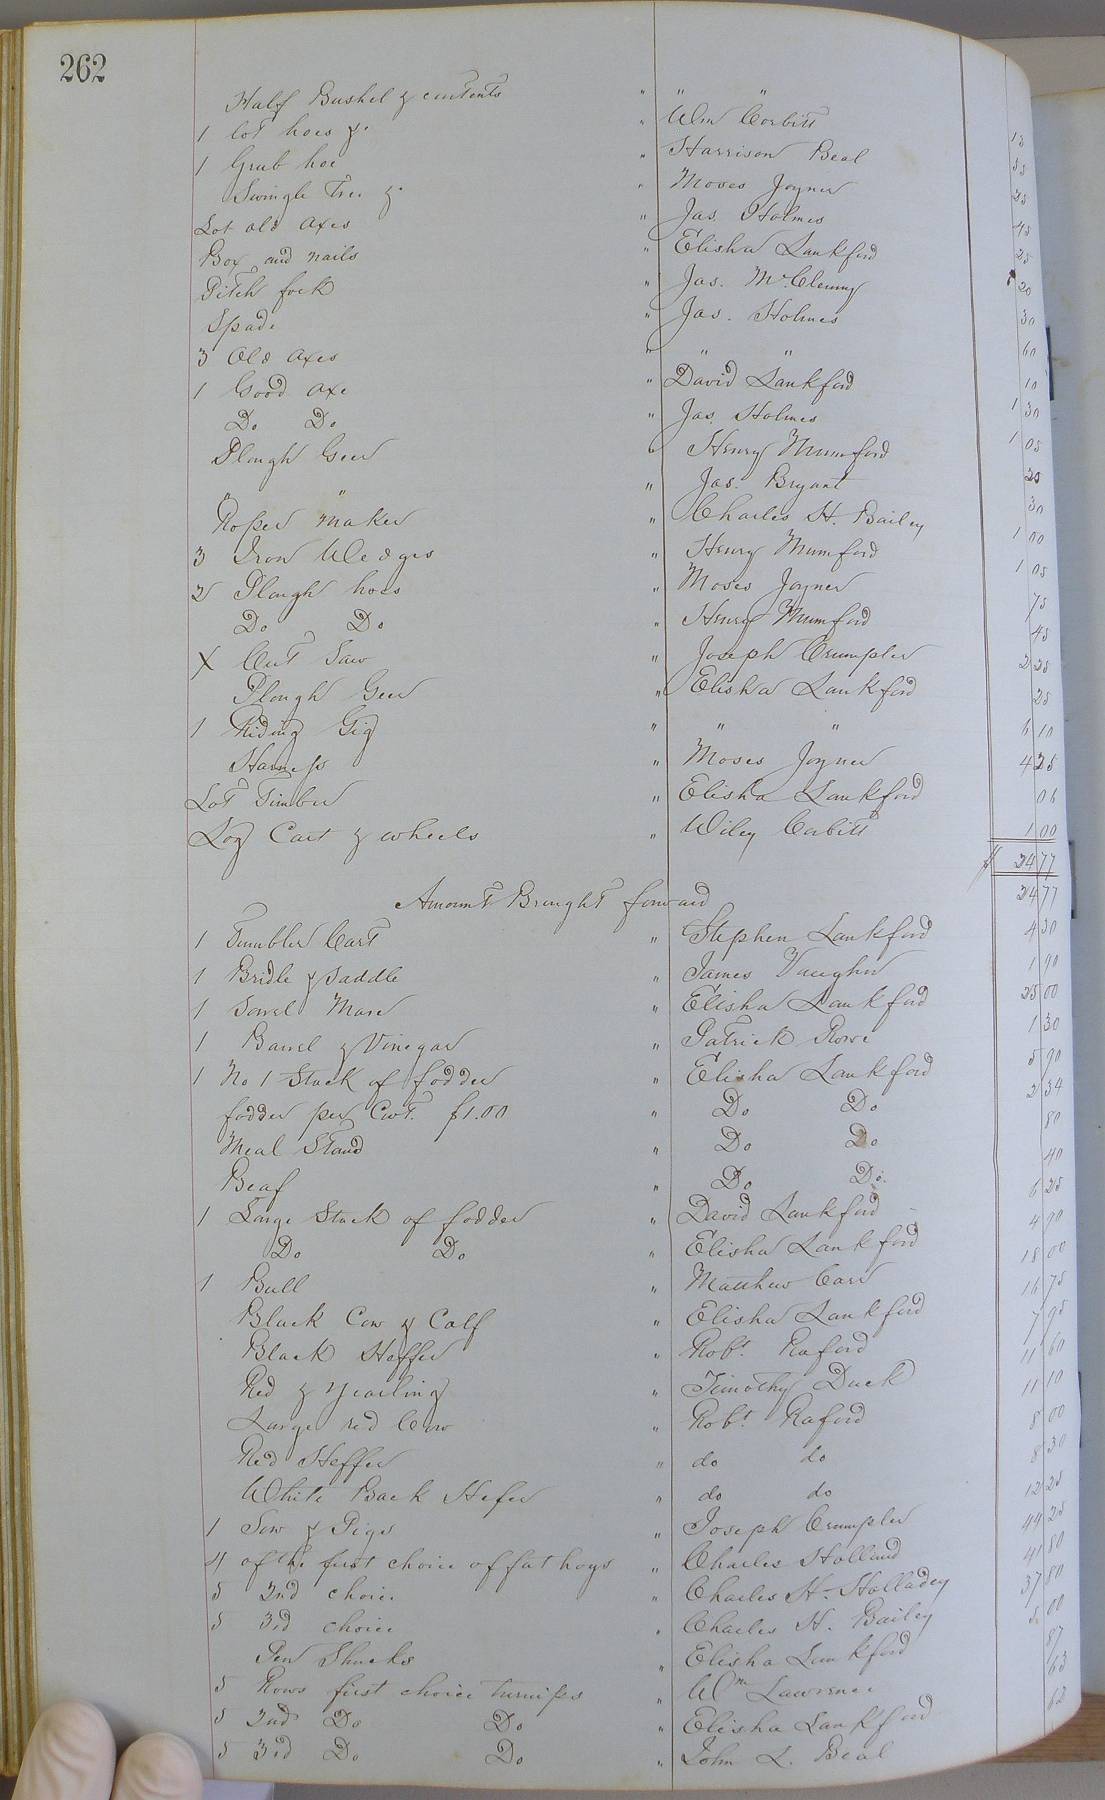 262
Half Bushel & contents " " "  15
1 lot hoes &c " Wm Corbitt 55
1 Grub hoe " Harrison Beal 25
Swingle Tree &c " Moses Joyner 45
Lot old axes " Jas. Holmes 25
Box and nails " Elisha Lankford 20
Pitch fork " Jas. McClenny 30
Spade " Jas. Holmes 60
3 Old axes " " " 10
1 Good axe " David Lankford 1 30
Do Do " Jas. Holmes 1 05
Plough Geer " Henry Mumford 20
" " " Jas. Bryant 30
Roper maker " Charles H. Bailey 1 00
3 Iron Wedges " Henry Mumford 1 05
2 Plough hoes " Moses Joyner 75
Do Do " Henry Mumford 45
X Cut Saw " Joseph Crumpler 2 25
Plough Geer " Elisha Lankford 25
1 Riding Gig " " " 6 10
Harness " Moses Joyner 4 25
Lot Timber " Elisha Lankford 06
Log Cart & wheels " Wiley Corbitt 1 00
$ 24 77
Amount Brought forward 24 77
1 Tumbler Cart " Stephen Lankford 4 30
1 Bridle & Saddle " James Vaughn 1 90
1 Sorrel Mare " Elisha Lankford 25 00
1 Barrel & Vinegar " Patrick Rowe 1 30
1 No 1 Stack of fodder " Elisha Lankford 5 90
fodder per Cwt. $1.00 " Do Do 2 34
Meal Stand " Do Do 80
Beaf " Do Do. 40
1 Large Stack of fodder " David Lankford 6 25
Do Do " Elisha Lankford 4 90
1 Bull " Matthew Carr 18 00
Black Cow & Calf " Elisha Lankford 16 75
Black Heffer " Robt. Raford 7 95
Red & Yearling " Timothy Duck 11 60
Large red Cow " Robt. Raford 11 10
Red Heffer " do do 8 00
White Back Hefer " do do 8 30
1 Sow & Pigs " Joseph Crumpler 12 25
4 of the first choice of fat hogs " Charles Holland 44 25
5 2nd choice " Charles H. Holladey 41 80
5 3rd choice " Charles H. Bailey 37 80
Pen Shucks " Elisha Lankford 5 00
5 Rows first choice turnips " Wm Lawrence 87
5 2nd Do Do " Elisha Lankford 63
5 3rd Do Do " John L. Beal 62